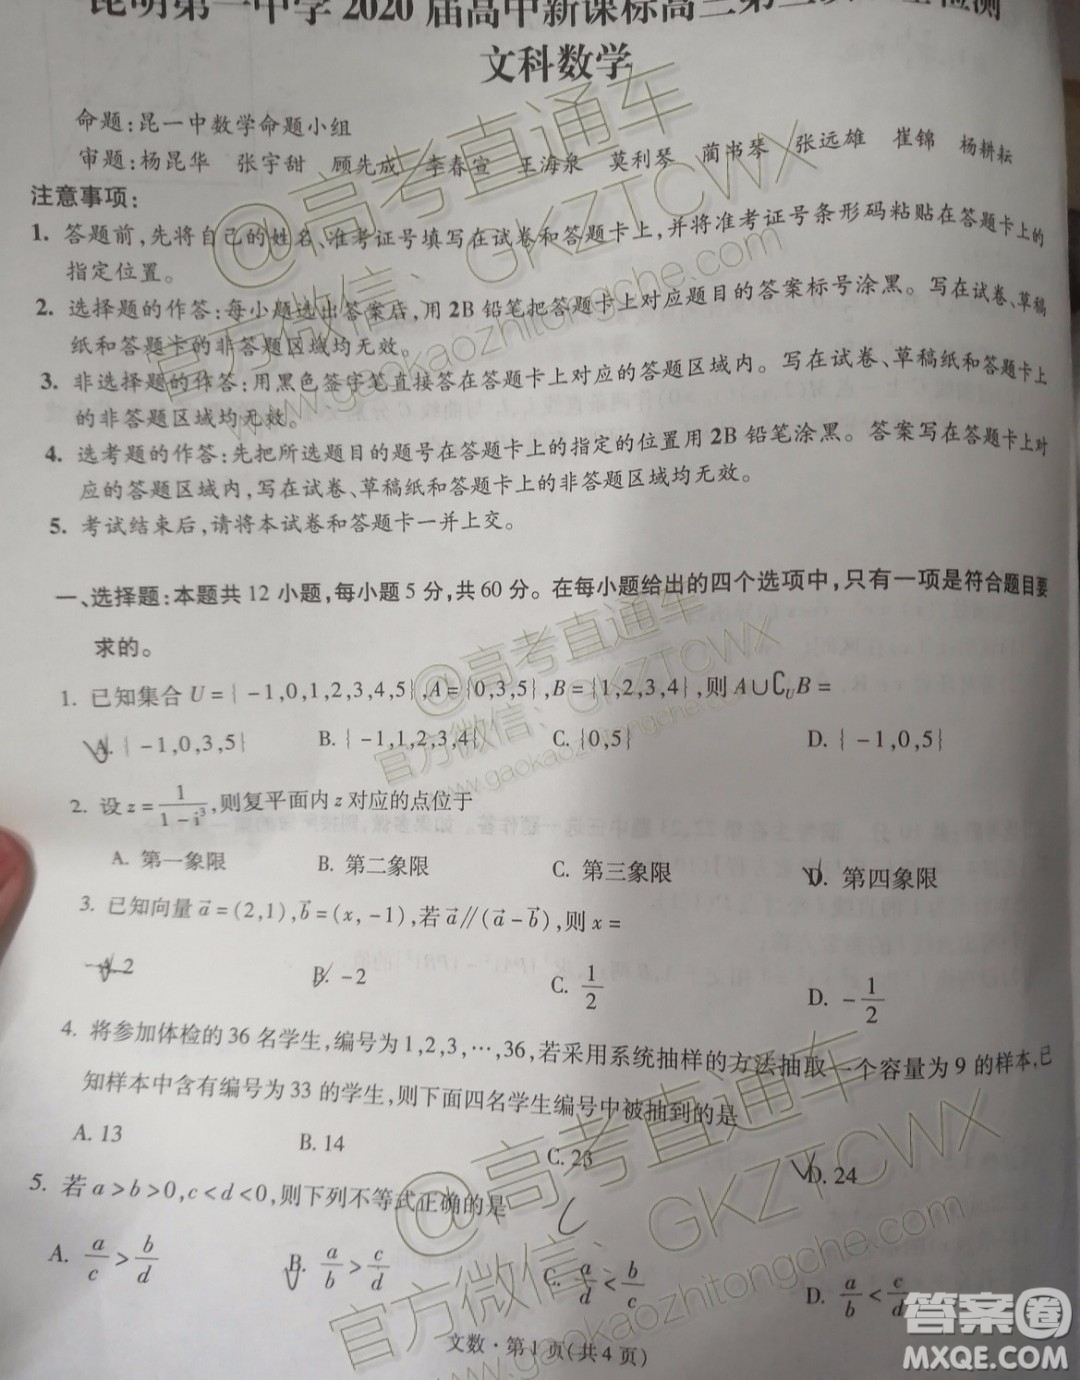 昆明第一中学2020届高中新课标高三第
检测
文科数学
命题:昆一中数学命题小组
审题:杨昆华 张宇甜 顾先成 李春宣 王海泉 莫利琴 蔺书琴 张远雄 崔锦 杨耕耘
注意事项:
1. 答题前,先将自己的姓名、准考证号填写在试卷和答题卡上,并将准考证号条形码粘贴在答题卡上的
指定位置。
2. 选择题的作答:每小题选出答案后,用2B铅笔把答题卡上对应题目的答案标号涂黑。写在试卷、草稿
纸和答题卡的非答题区域均无效。
3. 非选择题的作答:用黑色签字笔直接答在答题卡上对应的答题区域内。写在试卷、草稿纸和答题卡上
的非答题区域均无效。
4. 选考题的作答:先把所选题目的题号在答题卡上的指定的位置用2B铅笔涂黑。答案写在答题卡上对
应的答题区域内,写在试卷、草稿纸和答题卡上的非答题区域均无效。
5. 考试结束后,请将本试卷和答题卡一并上交。
一、选择题:本题共12小题,每小题5分,共60分。在每小题给出的四个选项中,只有一项是符合题目要
求的。
1. 已知集合U={-1,0,1,2,3,4,5},A={0,3,5},B={1,2,3,4},则A∪∁_U B=
A. {-1,0,3,5} B. {-1,1,2,3,4} C. {0,5} D. {-1,0,5}
2. 设z=1/(1-i³),则复平面内z对应的点位于
A. 第一象限 B. 第二象限 C. 第三象限 D. 第四象限
3. 已知向量a⃗=(2,1),b⃗=(x,-1),若a⃗∥(a⃗-b⃗),则x=
A. 2 B. -2 C. 1/2 D. -1/2
4. 将参加体检的36名学生,编号为1,2,3,…,36,若采用系统抽样的方法抽取一个容量为9的样本,已
知样本中含有编号为33的学生,则下面四名学生编号中被抽到的是
A. 13 B. 14 C. 23 D. 24
5. 若a>b>0,c<d<0,则下列不等式正确的是
A. a/c>b/d B. a/b>c/d C. a/d<b/c D. a/b<c/d
文数·第1页(共4页)
@高考直通车
官方微信:GKZTCWX
www.gaokaozhitongche.com
@高考直通车
官方微信:GKZTCWX
www.gaokaozhitongche.com
@高考直通车
官方微信:GKZTCWX
www.gaokaozhitongche.com
答案圈
MXQE.COM